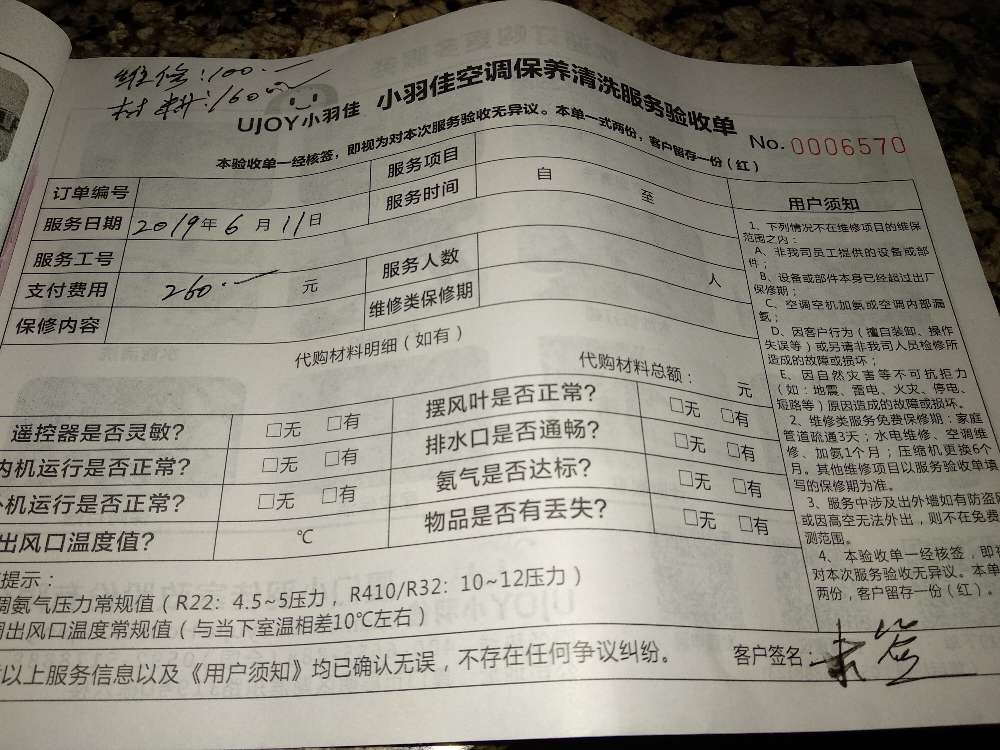 维修:100.—
材料:160.—
UJOY小羽佳 小羽佳空调保养清洗服务验收单
No.0006570
本验收单一经核签，即视为对本次服务验收无异议。本单一式两份，客户留存一份（红）
订单编号 服务项目
服务日期 2019年6月11日 服务时间 自 至
服务工号 服务人数 人
支付费用 260.— 元 维修类保修期
保修内容
代购材料明细（如有） 代购材料总额： 元
遥控器是否灵敏？ □无 □有 摆风叶是否正常？ □无 □有
内机运行是否正常？ □无 □有 排水口是否通畅？ □无 □有
外机运行是否正常？ □无 □有 氨气是否达标？ □无 □有
出风口温度值？ ℃ 物品是否有丢失？ □无 □有
提示：
调氨气压力常规值（R22：4.5~5压力，R410/R32：10~12压力）
调出风口温度常规值（与当下室温相差10℃左右）
以上服务信息以及《用户须知》均已确认无误，不存在任何争议纠纷。 客户签名：未签
用户须知
1、下列情况不在维修项目的维保
范围之内：
A、非我司员工提供的设备或部
件；
B、设备或部件本身已经超过出厂
保修期；
C、空调空机加氨或空调内部漏
氨；
D、因客户行为（擅自装卸、操作
失误等）或另请非我司人员检修所
造成的故障或损坏；
E、因自然灾害等不可抗拒力
（如：地震、雷电、火灾、停电、
短路等）原因造成的故障或损坏。
2、维修类服务免费保修期：家庭
管道疏通3天；水电维修、空调维
修、加氨1个月；压缩机更换6个
月。其他维修项目以服务验收单填
写的保修期为准。
3、服务中涉及出外墙如有防盗
或因高空无法外出，则不在免费
测范围。
4、本验收单一经核签，即
对本次服务验收无异议。本单
两份，客户留存一份（红）。